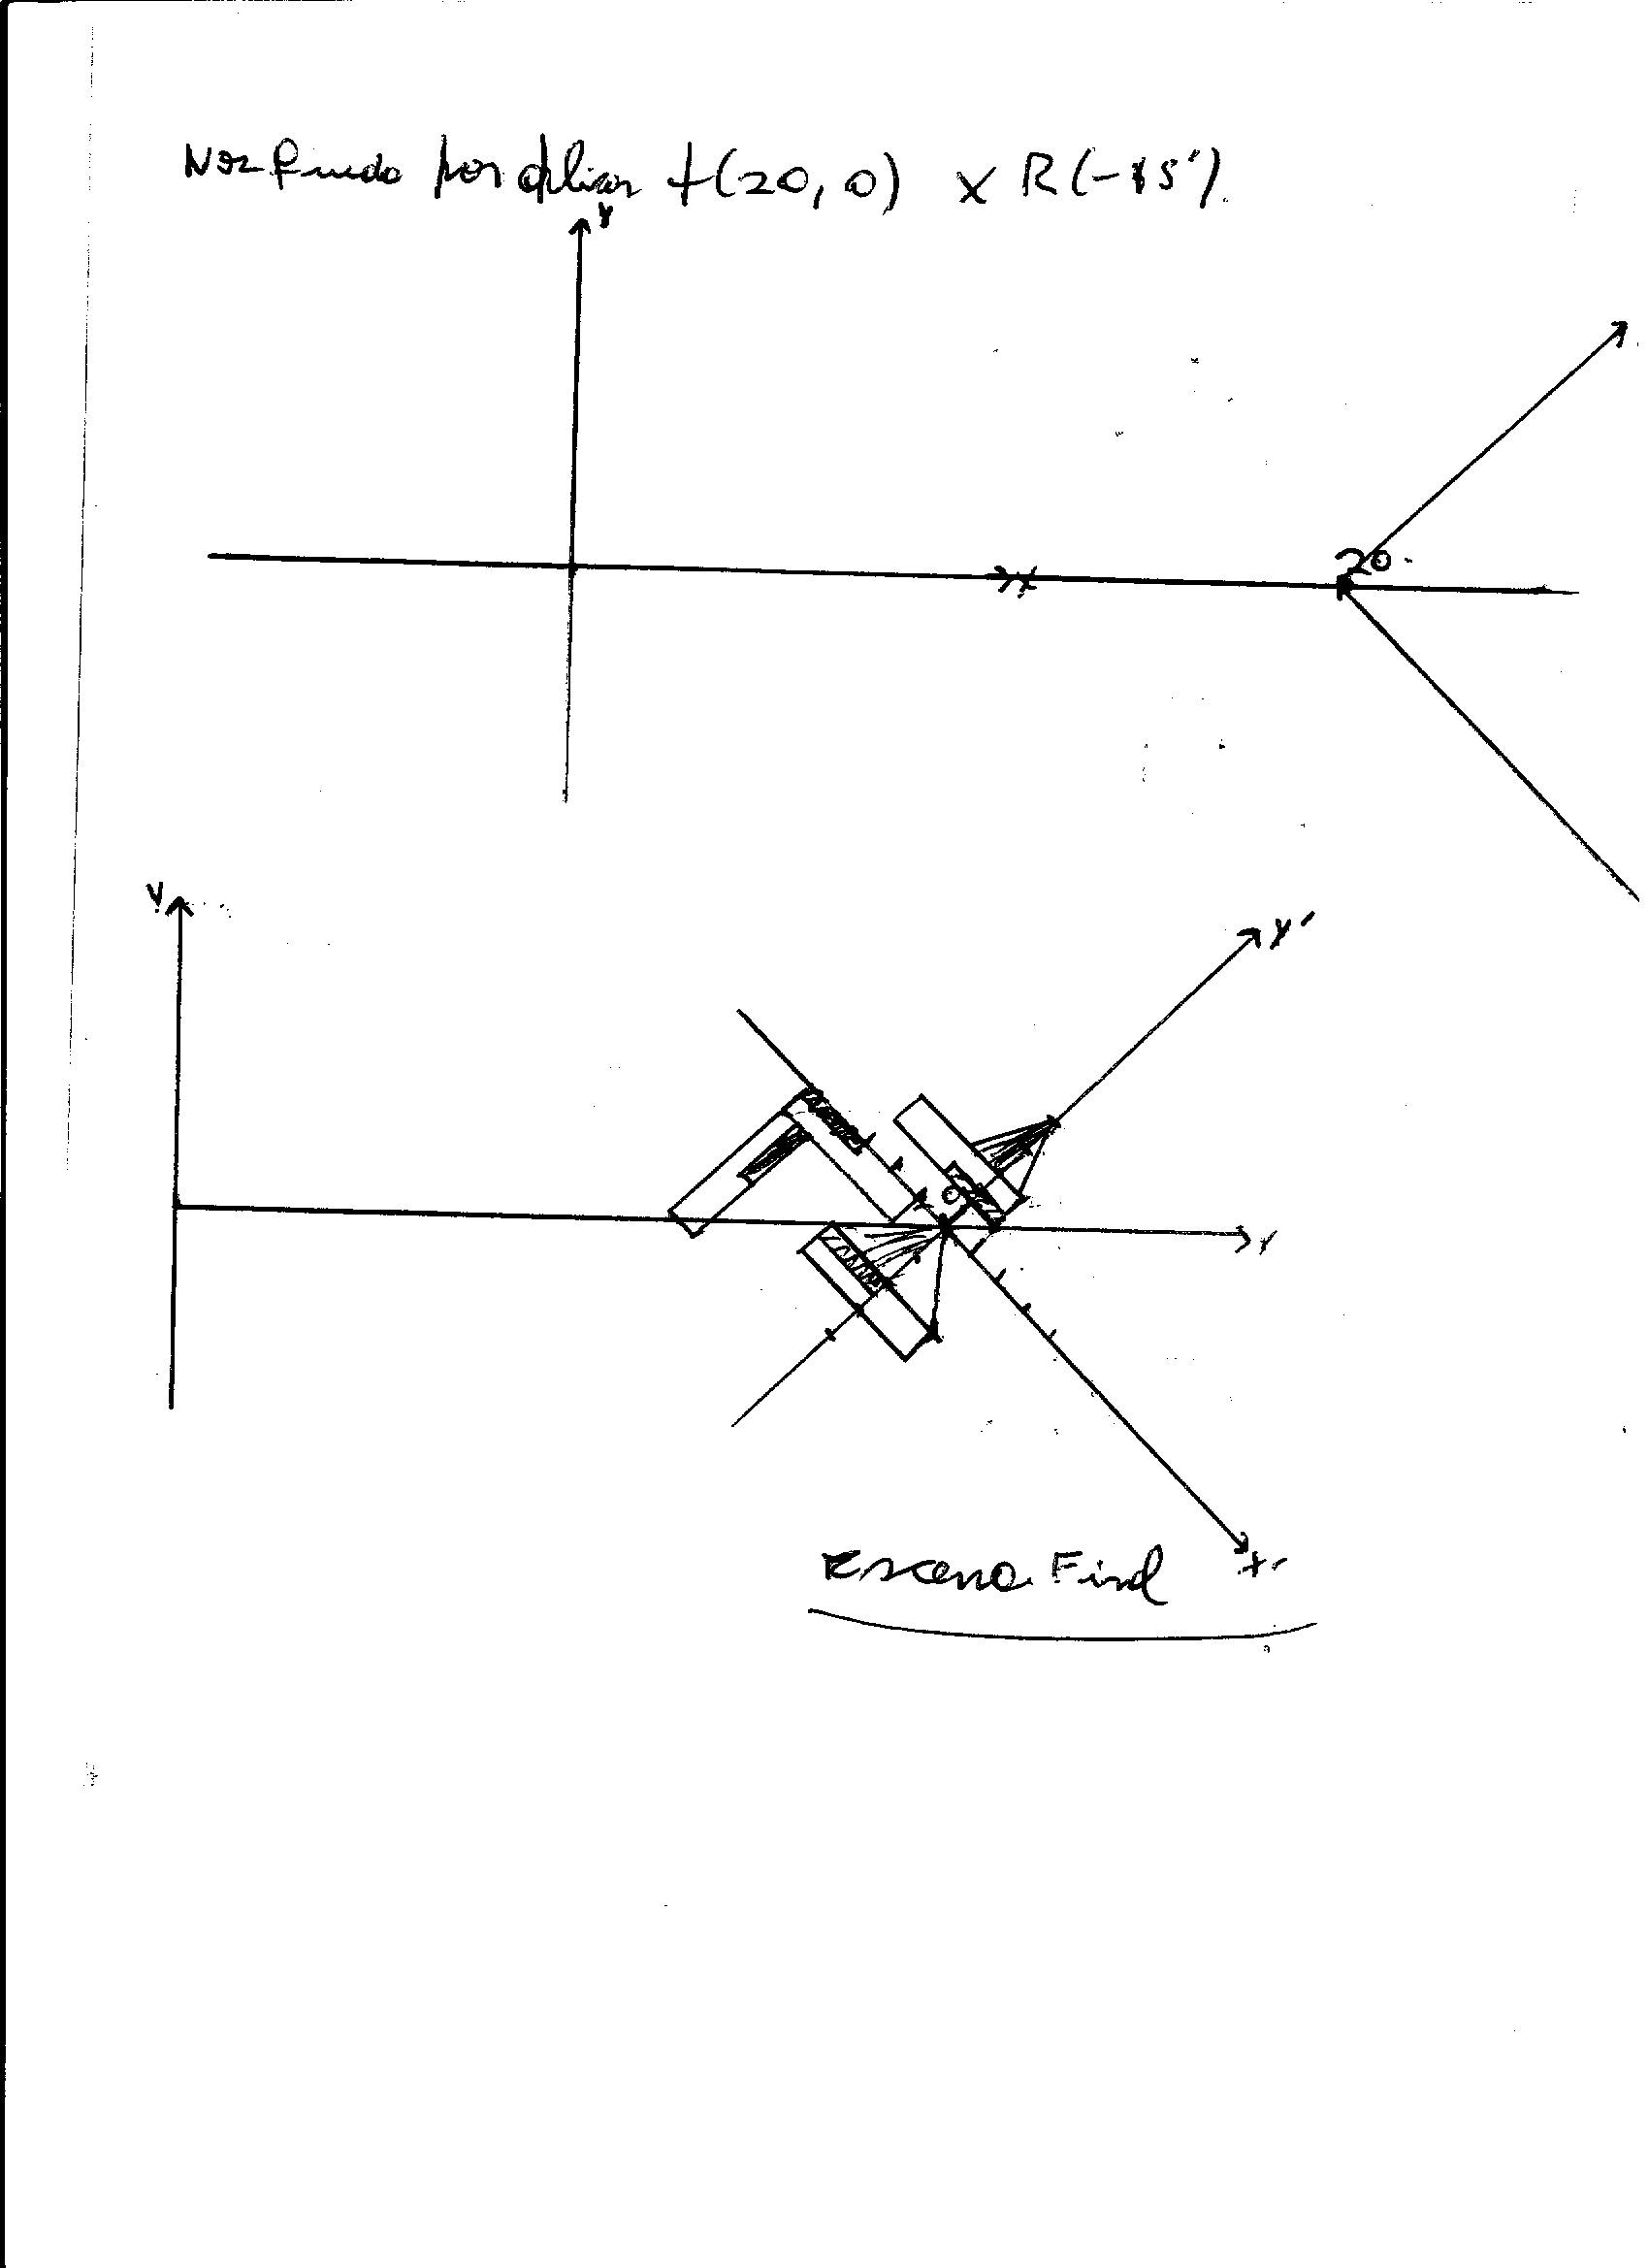 Nos queda por aplicar t(20,0) x R(-45°).
y
20
x
y
y'
x
x'
Escena Final